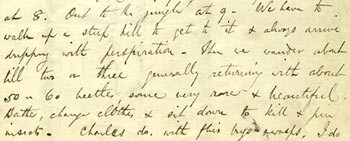 at 8. Out to the jungle at 9. We have to
walk up a steep hill to get to it & always arrive
dripping with perspiration. Then we wander about
till two or three generally returning with about
50 or 60 beetles some very rare & beautiful.
Bathe, change clothes & sit down to kill & pin
insects. Charles do. with flies bugs & wasps, I do